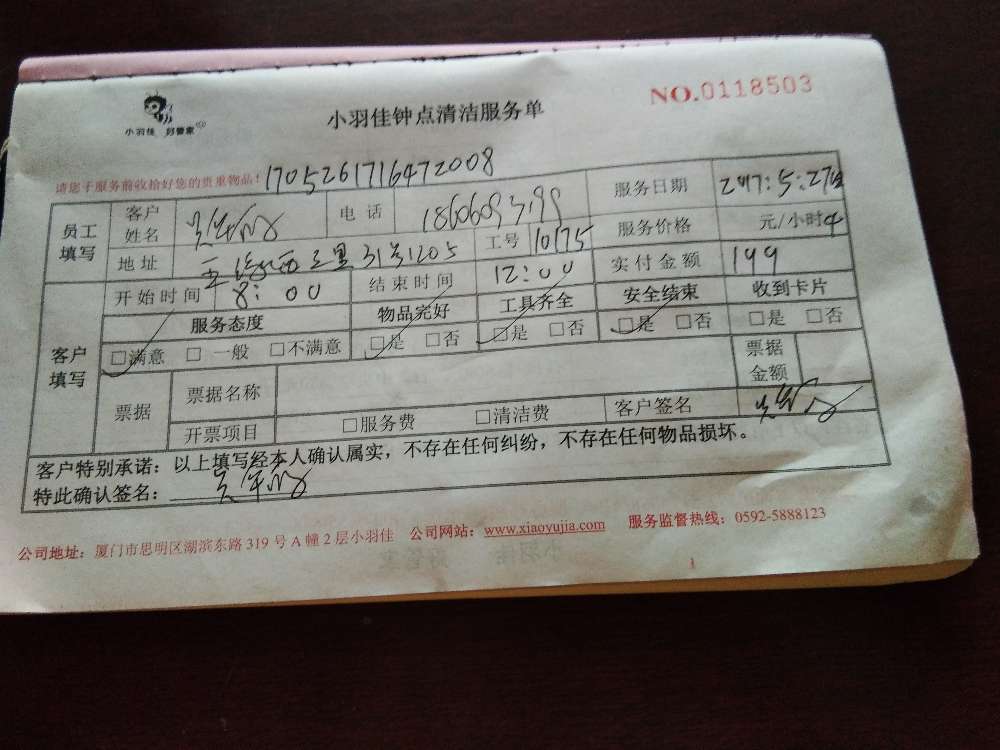 小羽佳 好管家
小羽佳钟点清洁服务单
NO.0118503
请您于服务前收拾好您的贵重物品！ 1705261716472008
员工填写 客户姓名 电话 服务日期 2017:5:27
地址 31号1205 工号 10175 服务价格 元/小时
开始时间 8:00 结束时间 12:00 实付金额 199
客户填写 服务态度 物品完好 工具齐全 安全结束 收到卡片
□满意 □一般 □不满意 □是 □否 □是 □否 □是 □否 □是 □否
票据 票据名称 票据金额
开票项目 □服务费 □清洁费 客户签名
客户特别承诺：以上填写经本人确认属实，不存在任何纠纷，不存在任何物品损坏。
特此确认签名：
公司地址：厦门市思明区湖滨东路 319 号 A 幢 2 层小羽佳 公司网站：www.xiaoyujia.com 服务监督热线：0592-5888123